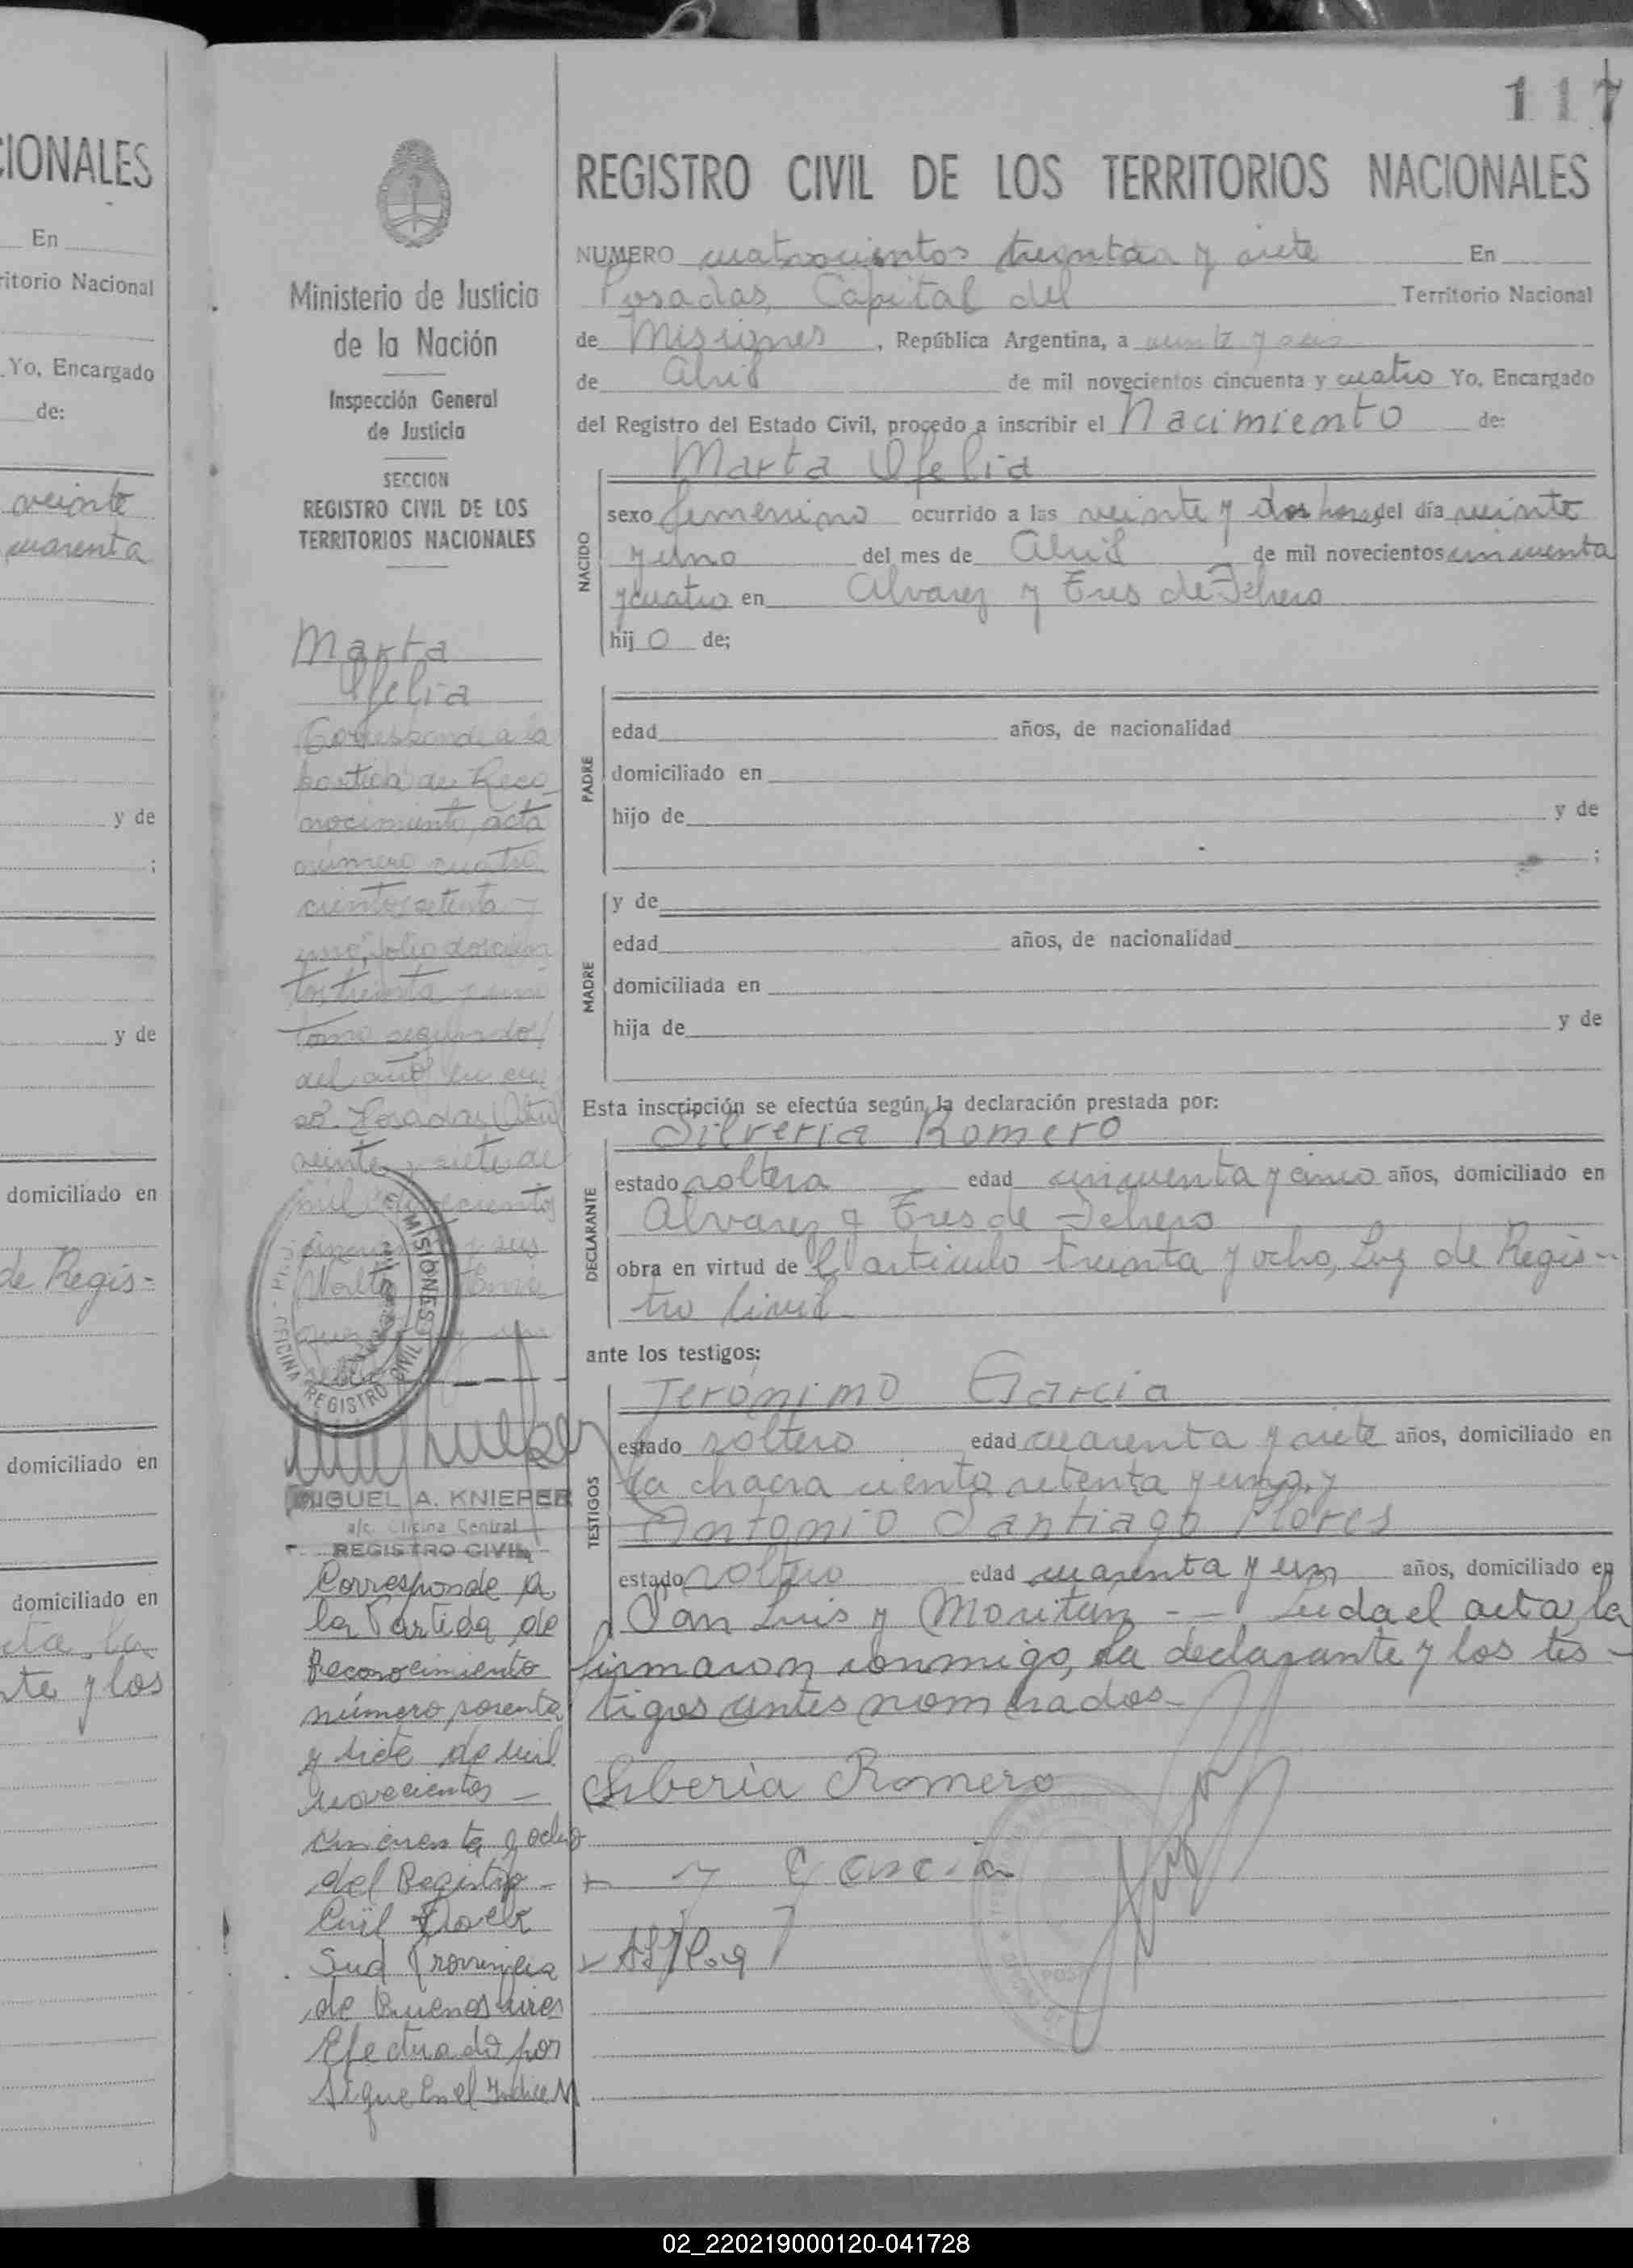 CIONALES
En
ritorio Nacional
Yo, Encargado
de:
veinte
cuarenta
y de
;
y de
domiciliado en
de Regis=
domiciliado en
domiciliado en
acta, la
nte y los
117
Ministerio de Justicia
de la Nación
Inspección General
de Justicia
SECCION
REGISTRO CIVIL DE LOS
TERRITORIOS NACIONALES
Marta
Ofelia
Corresponde a la
partida de Reco
nocimiento, acta
número cuatro
cientos setenta y
uno, folio doscien
tos treinta y uno
tomo segundo
del año en cur
so. Posadas, Abril
veinte y siete de
mil novecientos
MISIONES
OFICINA REGISTRO CIVIL
MIGUEL A. KNIEPER
a/c. Oficina Central
REGISTRO CIVIL
Corresponde a
la Partida de
Reconocimiento
número sesenta
y siete de mil
novecientos -
cincuenta y ocho
del Registro -
Civil
Sud Provincia
de Buenos Aires
Efectuado por
Sigue en el Indice M
REGISTRO CIVIL DE LOS TERRITORIOS NACIONALES
NUMERO cuatrocientos treinta y siete En
Posadas, Capital del Territorio Nacional
de Misiones, República Argentina, a veinte y seis
de Abril de mil novecientos cincuenta y cuatro Yo, Encargado
del Registro del Estado Civil, procedo a inscribir el Nacimiento de:
Marta Ofelia
NACIDO
sexo femenino ocurrido a las veinte y dos horas del día veinte
y uno del mes de Abril de mil novecientos cincuenta
y cuatro en Alvarez y Tres de Febrero
hij o de;
PADRE
edad años, de nacionalidad
domiciliado en
hijo de y de
;
MADRE
y de
edad años, de nacionalidad
domiciliada en
hija de y de
Esta inscripción se efectúa según la declaración prestada por:
Silveria Romero
DECLARANTE
estado soltera edad cincuenta y cinco años, domiciliado en
Alvarez y Tres de Febrero
obra en virtud de l artículo treinta y ocho, Ley de Regis-
tro Civil
ante los testigos:
Jerónimo García
TESTIGOS
estado soltero edad cuarenta y siete años, domiciliado en
la chacra ciento setenta y uno, y
Antonio Santiago Flores
estado soltero edad cuarenta y un años, domiciliado en
San Luis y Moritán - - Leída el acta, la
firmaron conmigo, la declarante y los tes-
tigos antes nombrados-
Siberia Romero
J Garcia
02_220219000120-041728